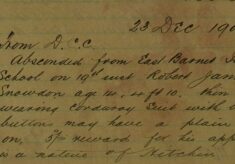 23 Dec 190
From D.C.C.
Absconded from East Barnet
School on 19th inst Robert Jam
Snowdon age 14, 4 ft 10. thin
wearing corduroy suit with
button may have a plain
on, 5/- reward for his app
is a native of Hitchin